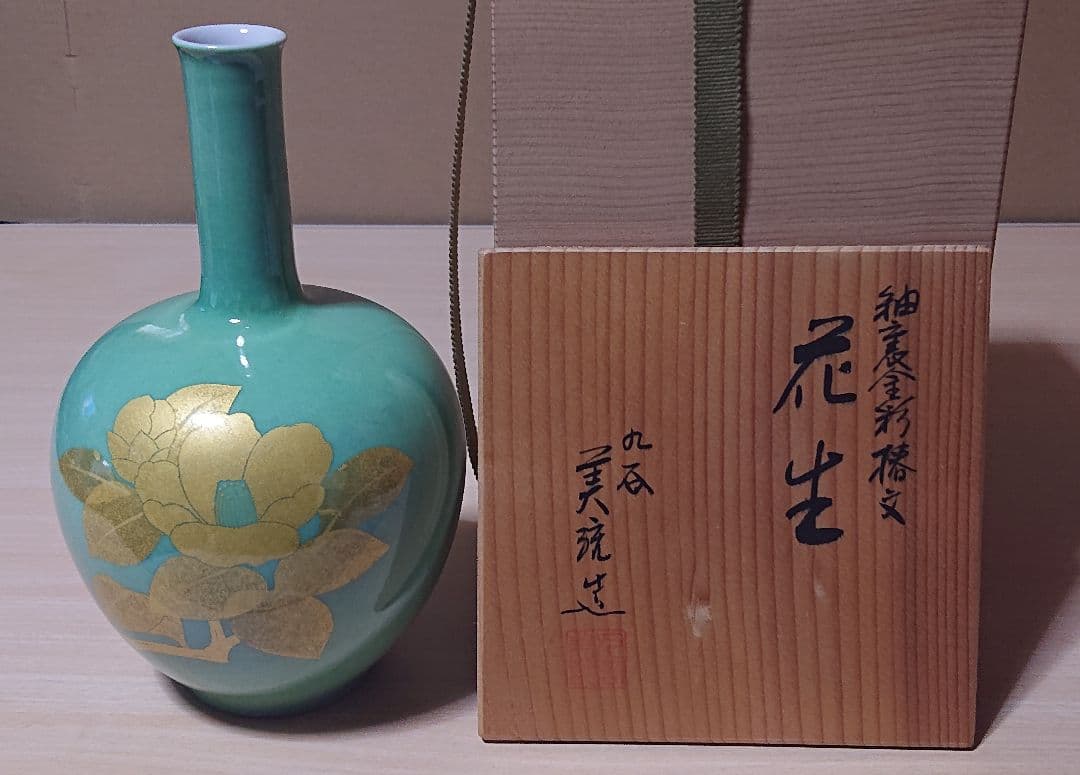 釉裏金彩椿文
花生
九谷
美統造